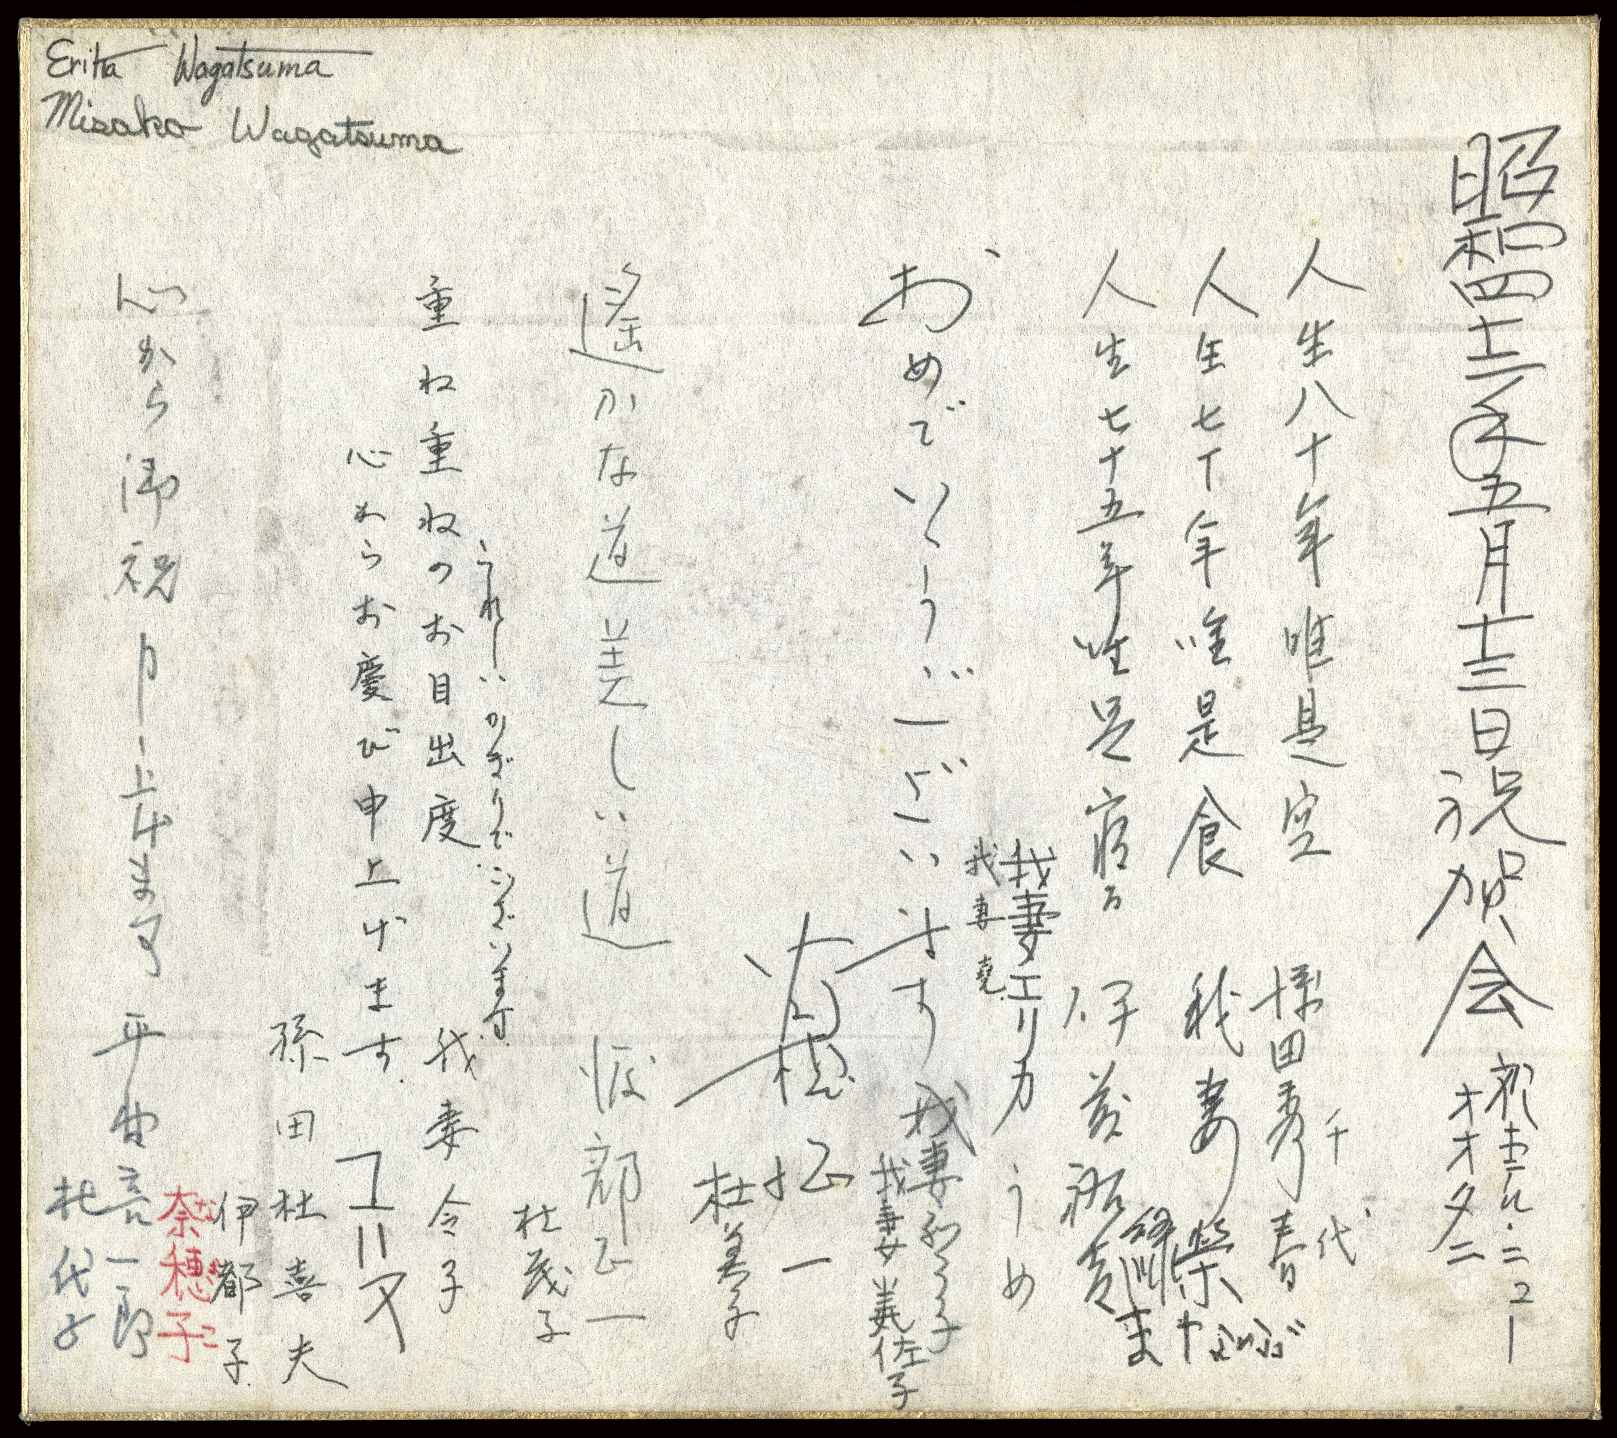 Erika Wagatsuma
Misako Wagatsuma
昭和四十二年五月十三日祝賀会 於ホテル・ニューオオタニ
人生八十年唯是空 田秀春
千代
人生七十年唯是食 我妻榮
人生七十五年唯是
うめ
我妻エリカ
我妻堯
おめでとうございます 我妻和子
我妻美佐子
植 一
杜美子
遙かな道 美しい道 服部正一
杜茂子
うれしいかぎりでございます
重ね重ねのお目出度 我妻令子
心からお慶び申上げます
孫田杜喜夫
伊都子
心から御祝申し上げます 平田吾一郎
奈穂子
杜代子